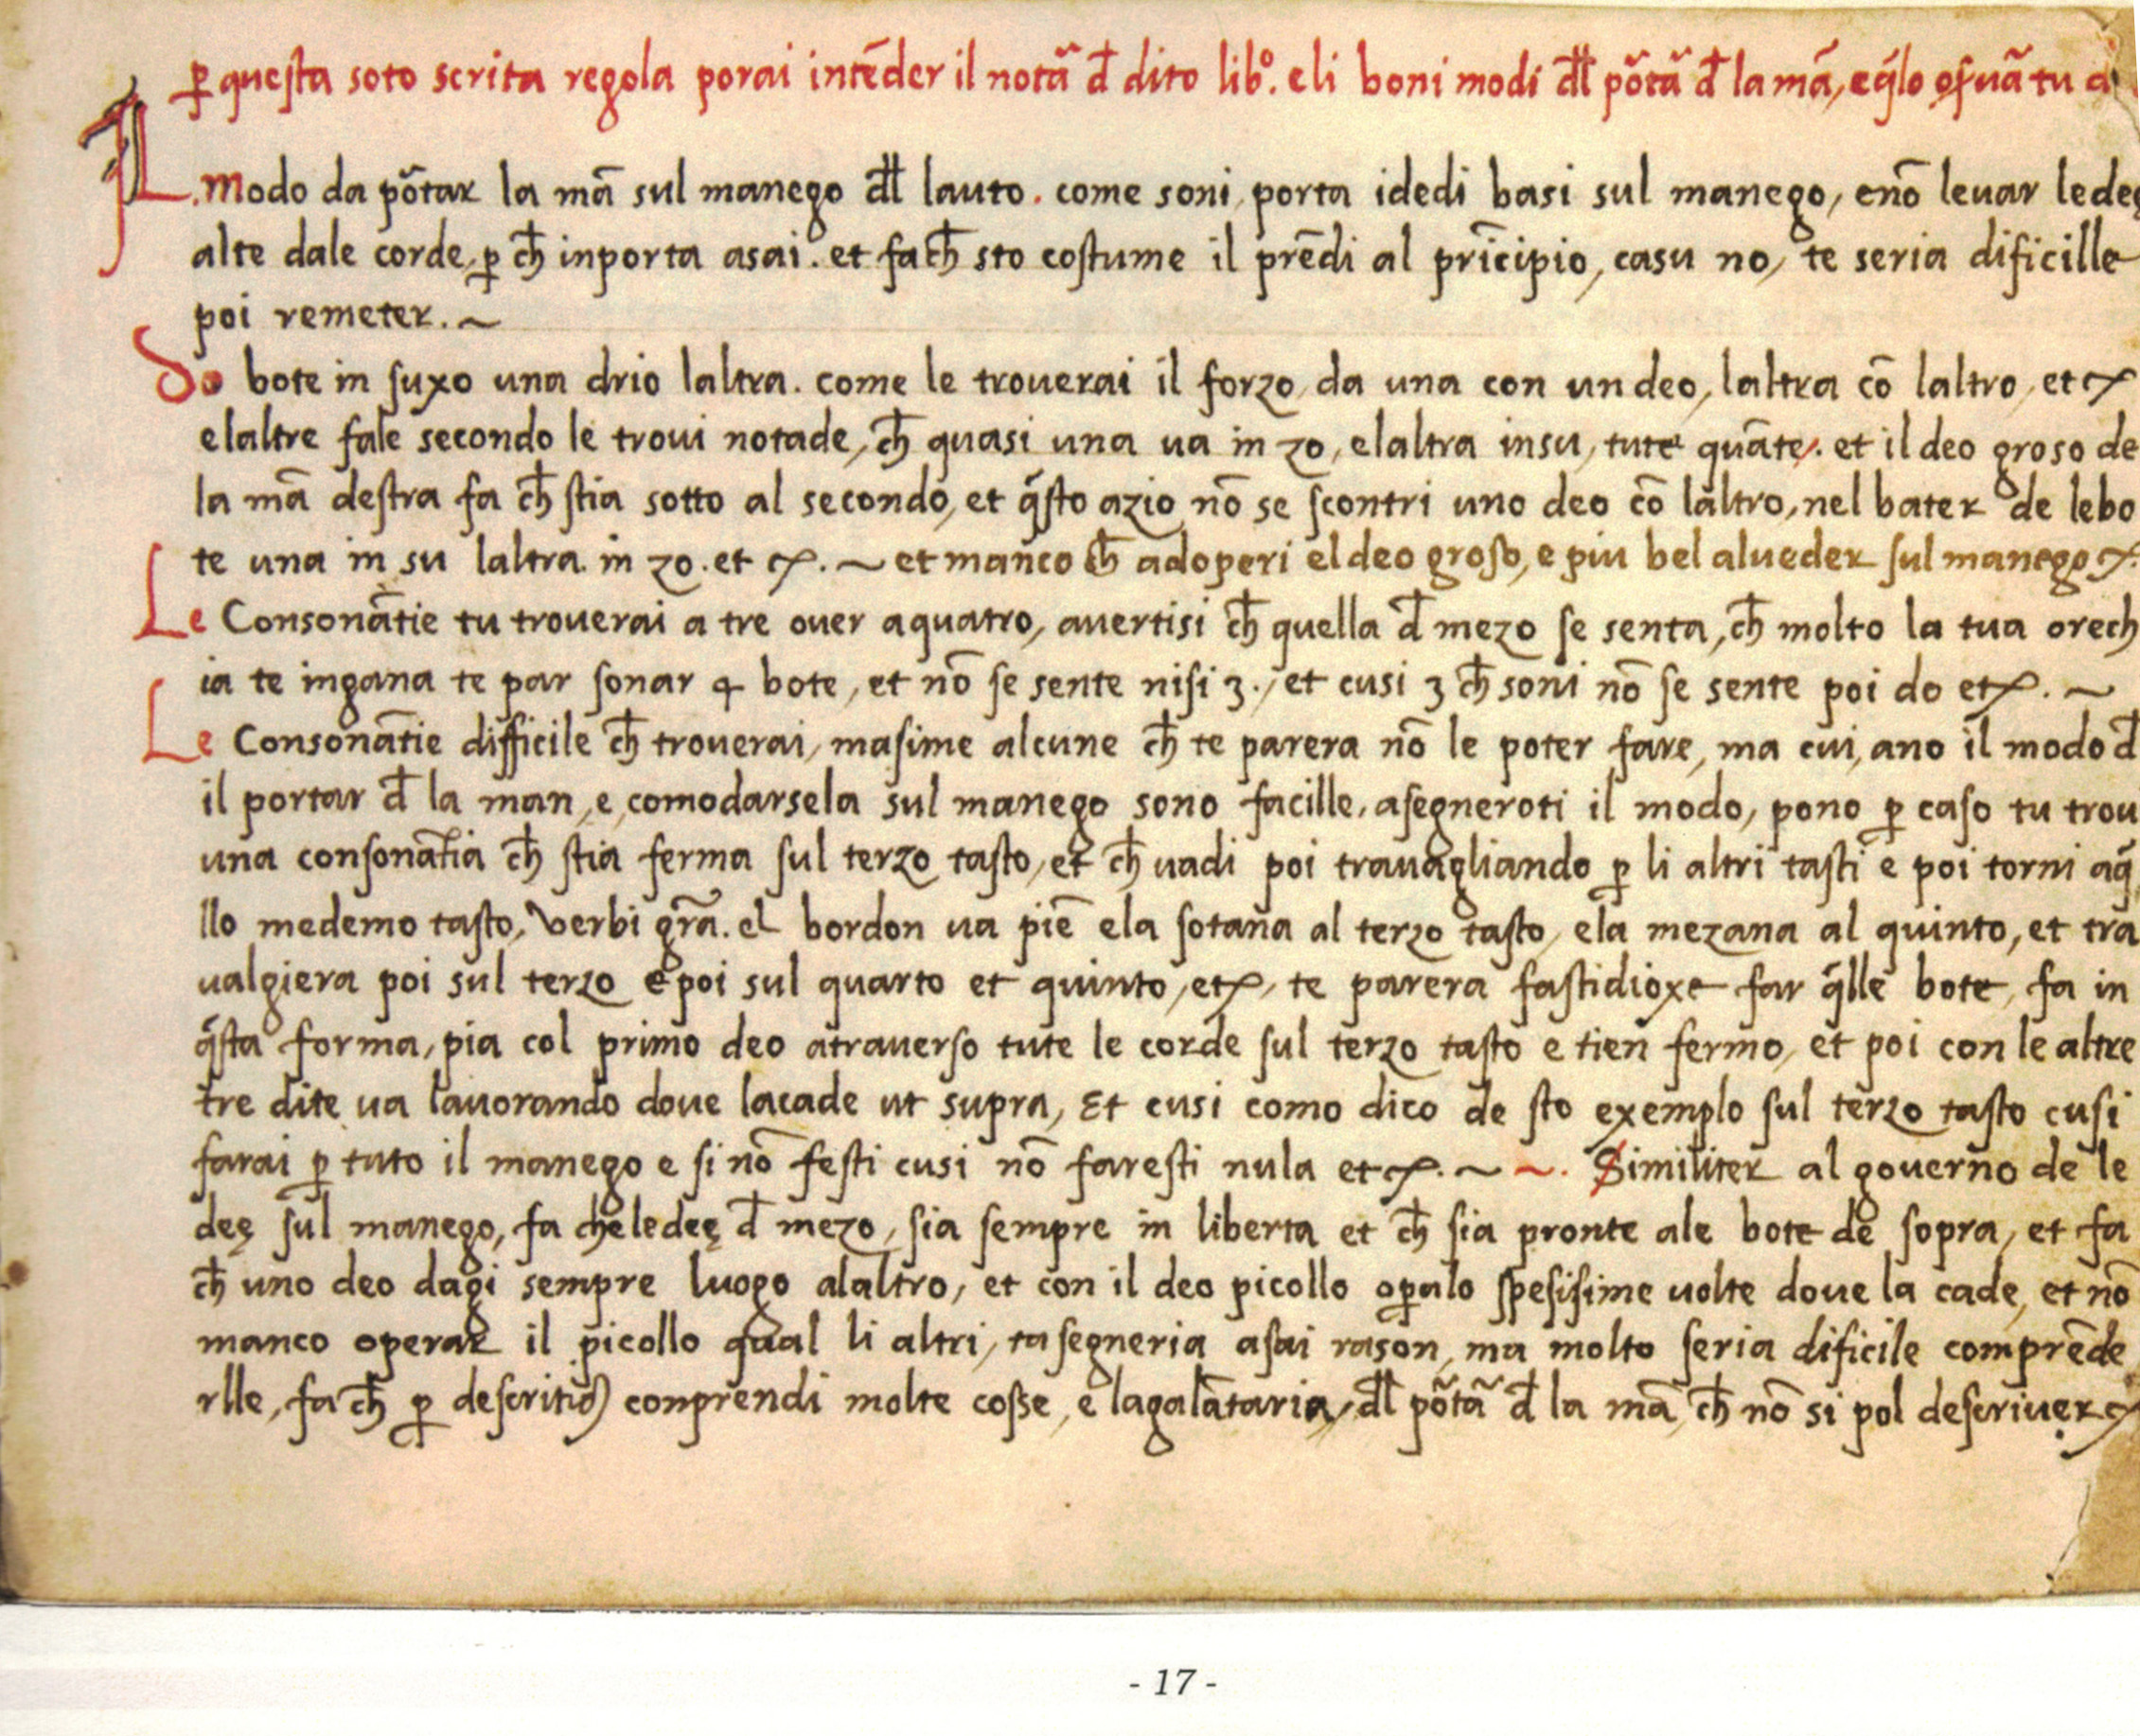 ꝑ questa soto scrita regola porai intēder il notã đ dito libº. eli boni modi đl põtã đ la mã, e q̃lo osꝑuã tu
IL. modo da põtar la mã sul manego đl lauto. come soni, porta idedi basi sul manego, enõ leuar lede
alte dale corde, ꝑ cħ inporta asai. et fa cħ sto costume il prēdi al prīcipio, casu no, te seria dificille
poi remeter. ~
Do bote in suxo una drio laltra. come le trouerai il forzo, da una con un deo, laltra cõ laltro, et cꝭ
elaltre fale secondo le troui notade, cħ quasi una ua in zo, elaltra insu, tute quãte. et il deo groso de
la mã destra fa cħ stia sotto al secondo, et q̃sto azio nõ se scontri uno deo cõ laltro, nel bater de lebo
te una in su laltra in zo. et cꝭ. ~ et manco cħ adoperi el deo groso, e piu bel alueder sul manego cꝭ.
Le Consonãtie tu trouerai a tre ouer a quatro, auertisi cħ quella đ mezo se senta, cħ molto la tua orech
ia te ingana te par sonar 4 bote, et nõ se sente nisi 3., et cusi 3 cħ soni nõ se sente poi do et cꝭ. ~
Le Consonãtie difficile cħ trouerai, masime alcune cħ te parera nõ le poter fare, ma cui, ano il modo đ
il portar đ la man, e, comodarsela sul manego sono facille, asegneroti il modo, pono ꝑ caso tu trou
una consonãtia cħ stia ferma sul terzo tasto, et cħ uadi poi trauagliando ꝑ li altri tasti e poi torni aq̃
llo medemo tasto, verbi grã. el bordon ua piē ela sotana al terzo tasto, ela mezana al quinto, et tra
ualgiera poi sul terzo e poi sul quarto et quinto, et cꝭ, te parera fastidioxe far q̃lle bote, fa in
q̃sta forma, pia col primo deo atrauerso tute le corde sul terzo tasto e tien fermo, et poi con le altre
tre dite ua lauorando doue lacade ut supra, Et cusi como dico de sto exemplo sul terzo tasto cusi
farai ꝑ tuto il manego e si nõ festi cusi nõ faresti nula et cꝭ. ~ ~. Similiter al gouerno de le
deę sul manego, fa che le deę đ mezo, sia sempre in liberta et cħ sia pronte ale bote de sopra, et fa
cħ uno deo dagi sempre luogo alaltro, et con il deo picollo oꝑalo spesisime uolte doue la cade, et nõ
manco operar il picollo qual li altri, tasegneria asai rason, ma molto seria dificile comprēde
rlle, fa cħ ꝑ descritiõ conprendi molte cosse, e lagalãtaria, đl põtã đ la mã, cħ nõ si pol descriuer cꝭ
- 17 -